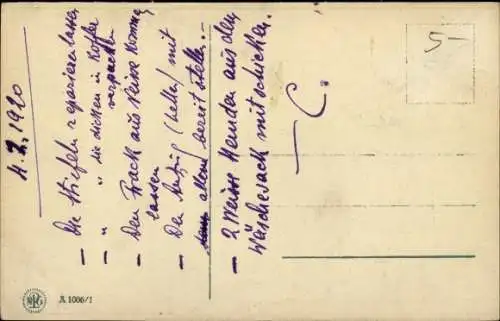 4.2.1920
– Die Stiefeln reparieren lassen
– " die dicken in Koffer
verpacken
– Den Frack aus Reise kommen
lassen
– Den Anzug (heller) mit
allem bereit stellen. –
– 2 Weisse Hemden aus dem
Wäschesack mitschicken.
C.
5
A 1006/1